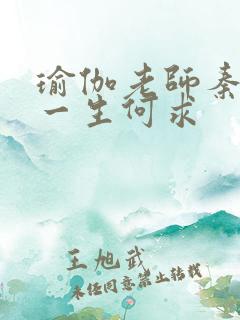 瑜伽老师秦
一生何求
王旭武
未经同意禁止转载